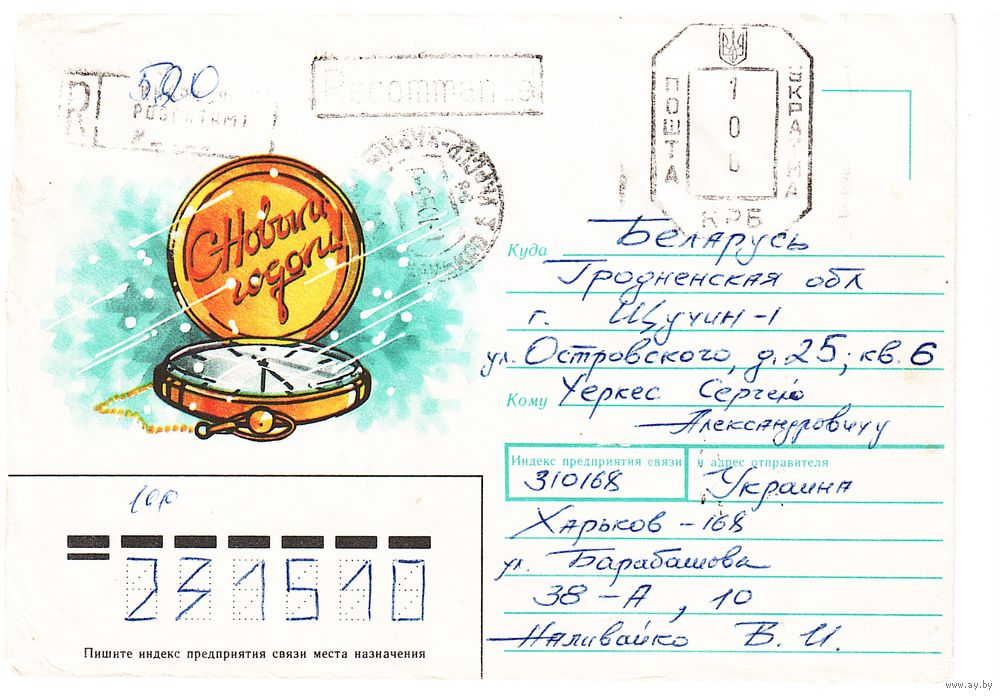 520
R
Recomman
ПОШТА
УКРАТНА
100
КРБ
С Новым
годом!
Куда Беларусь
Гродненская обл
г. Щучин-1
ул. Островского, д. 25; кв. 6
Кому Черкес Сергею
Александровичу
Индекс предприятия связи и адрес отправителя
310168 Украина
Харьков - 168
ул. Барабашова
38 - А, 10
Наливайко В. И.
100
231510
Пишите индекс предприятия связи места назначения
www.ay.by